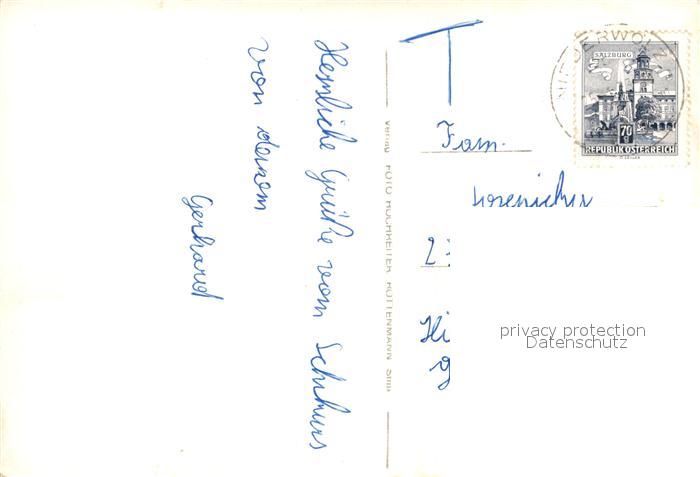 Herzliche Grüße vom Schikurs
von
Gerhard
Verlag FOTO HOCHREITER ROTTENMANN Stmk
T
Fam.
Hi
SALZBURG
70
REPUBLIK ÖSTERREICH
privacy protection
Datenschutz